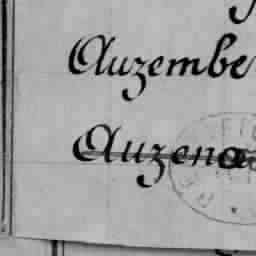 Auzembe
Auzena